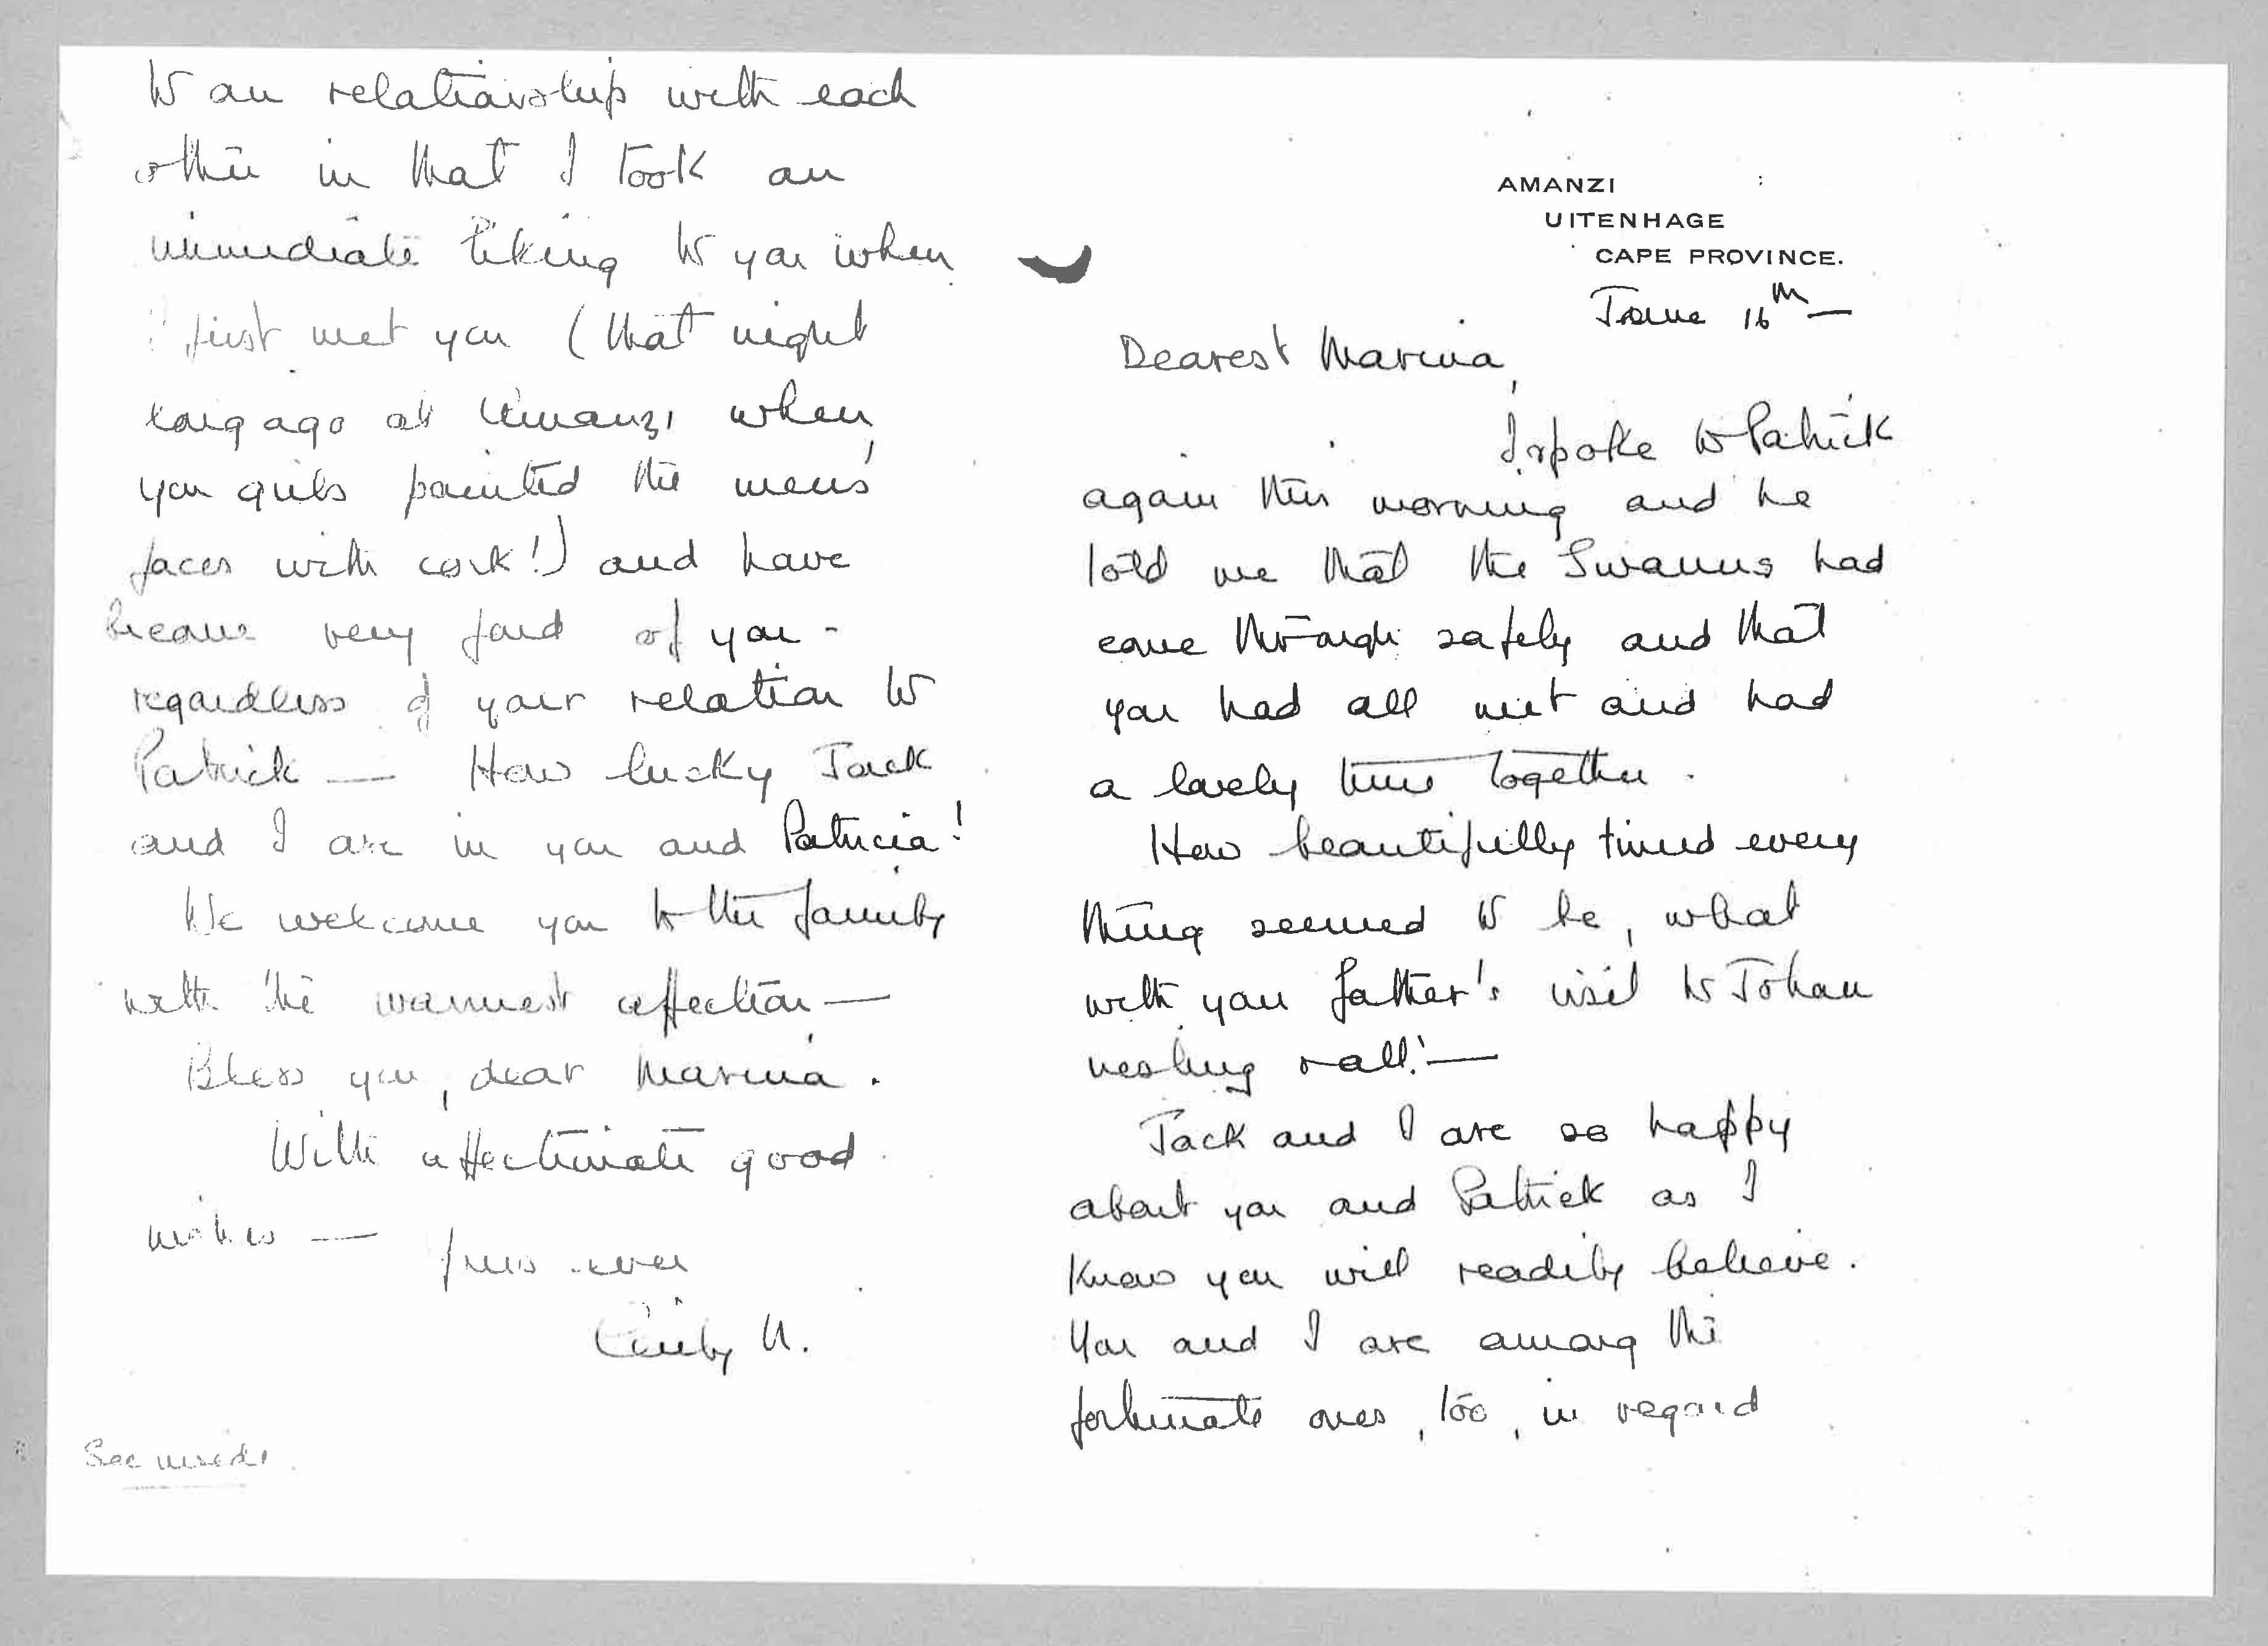 AMANZI
UITENHAGE
CAPE PROVINCE.
June 16th —
Dearest Marina,
I spoke to Patrick
again this morning and he
told me that the Swanns had
come through safely and that
you had all met and had
a lovely time together.
How beautifully timed every
thing seemed to be, what
with your father's visit to Johan
nesburg & all! —
Jack and I are so happy
about you and Patrick as I
know you will readily believe.
You and I are among the
fortunate ones, too, in regard
to our relationship with each
other in that I took an
immediate liking to you when
I first met you (that night
long ago at Amanzi when
you girls painted the mens'
faces with cork!) and have
become very fond of you -
regardless of your relation to
Patrick — How lucky Jack
and I are in you and Patricia!
We welcome you to the family
with the warmest affection —
Bless you, dear Marina.
With affectionate good
wishes — Yours ever
N.
See